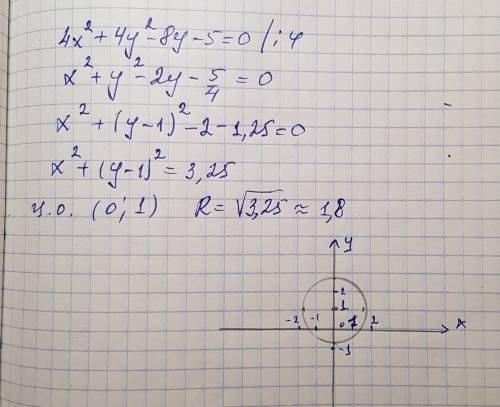 4x² + 4y² - 8y - 5 = 0 /:4
x² + y² - 2y - 5/4 = 0
x² + (y-1)² - 2 - 1,25 = 0
x² + (y-1)² = 3,25
ц.о. (0; 1) R = √3,25 ≈ 1,8
y
2
1
-2 -1 0 1 2 x
-1